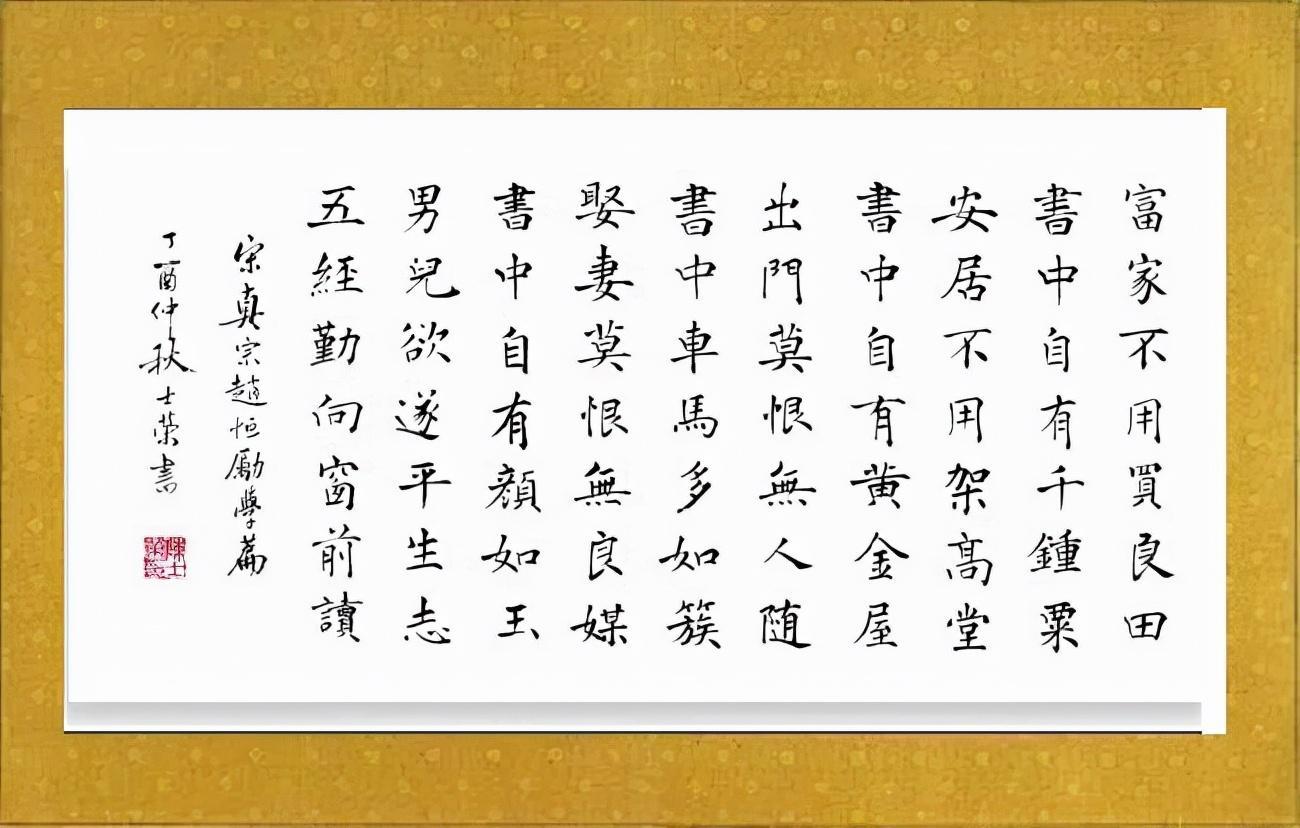 富家不用買良田
書中自有千鍾粟
安居不用架高堂
書中自有黄金屋
出門莫恨無人随
書中車馬多如簇
娶妻莫恨無良媒
書中自有顔如玉
男兒欲遂平生志
五經勤向窗前讀
宋真宗趙恒勵學篇
丁酉仲秋士榮書